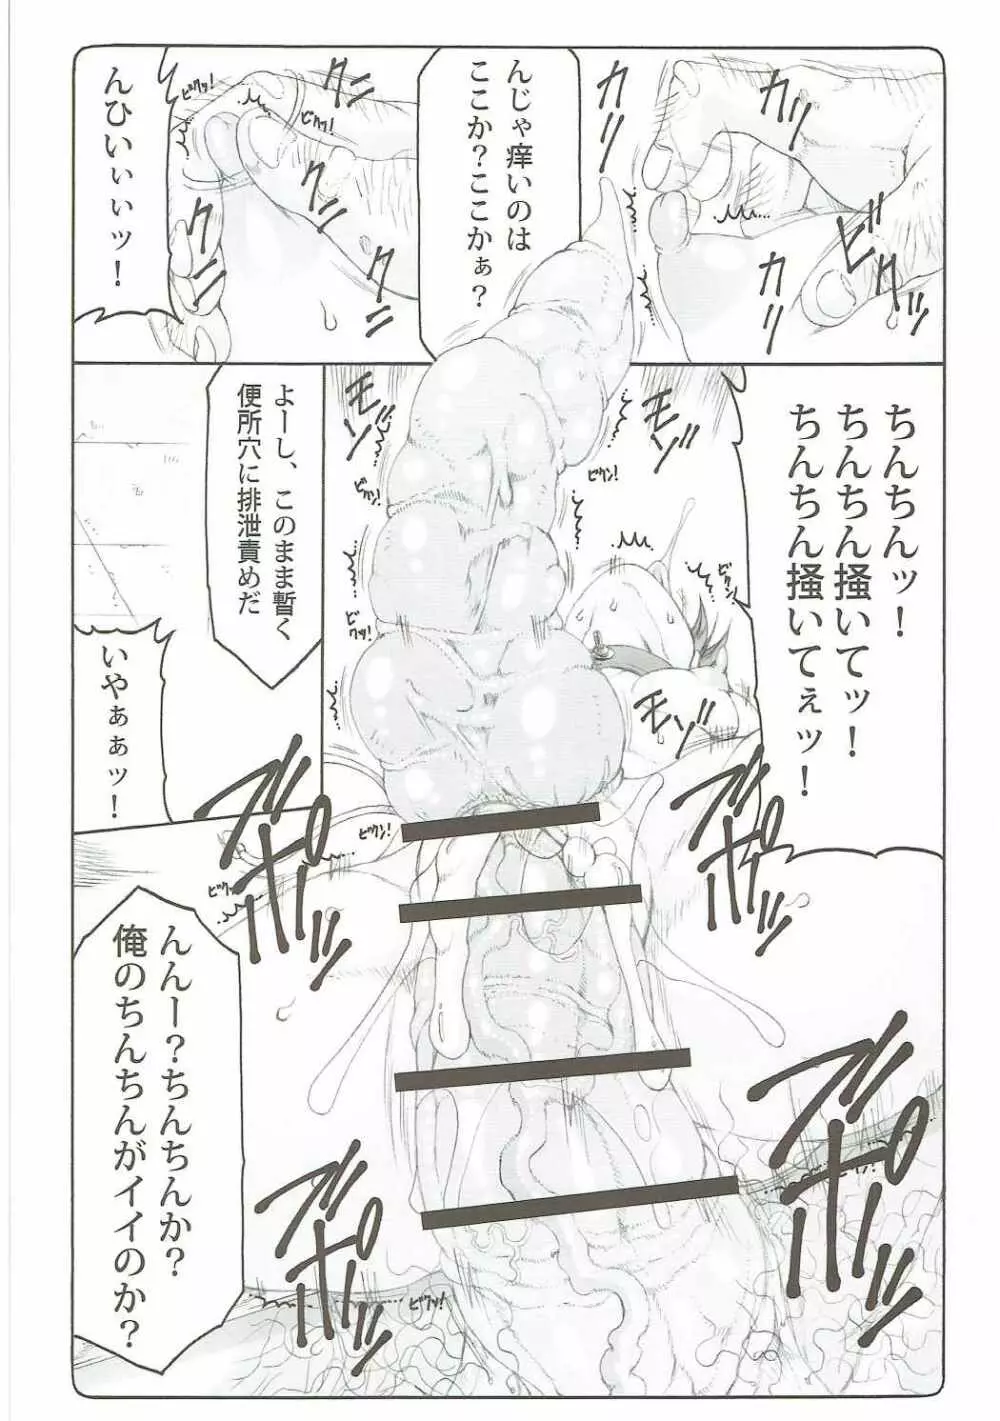 カリッ
カリッ
ビクッ
んじゃ痒いのは
ここか？ここかぁ？
クニ
クニ
クニ
クニ
ビクッ！
ビクッ！
んひいぃぃッ！
ちんちんッ！
ちんちん掻いてッ！
ちんちん掻いてぇッ！
モゾ
モゾ
モゾ
ビクン！
ビクン！
ビクッ！
ビクン！
よーし、このまま暫く
便所穴に排泄責めだ
いやぁぁッ！
ズポッ
ズポッ
ズポッ
ズポッ
ビクン！
ビクッ！
ビクッ！
んんー？ちんちんか？
俺のちんちんがイイのか？